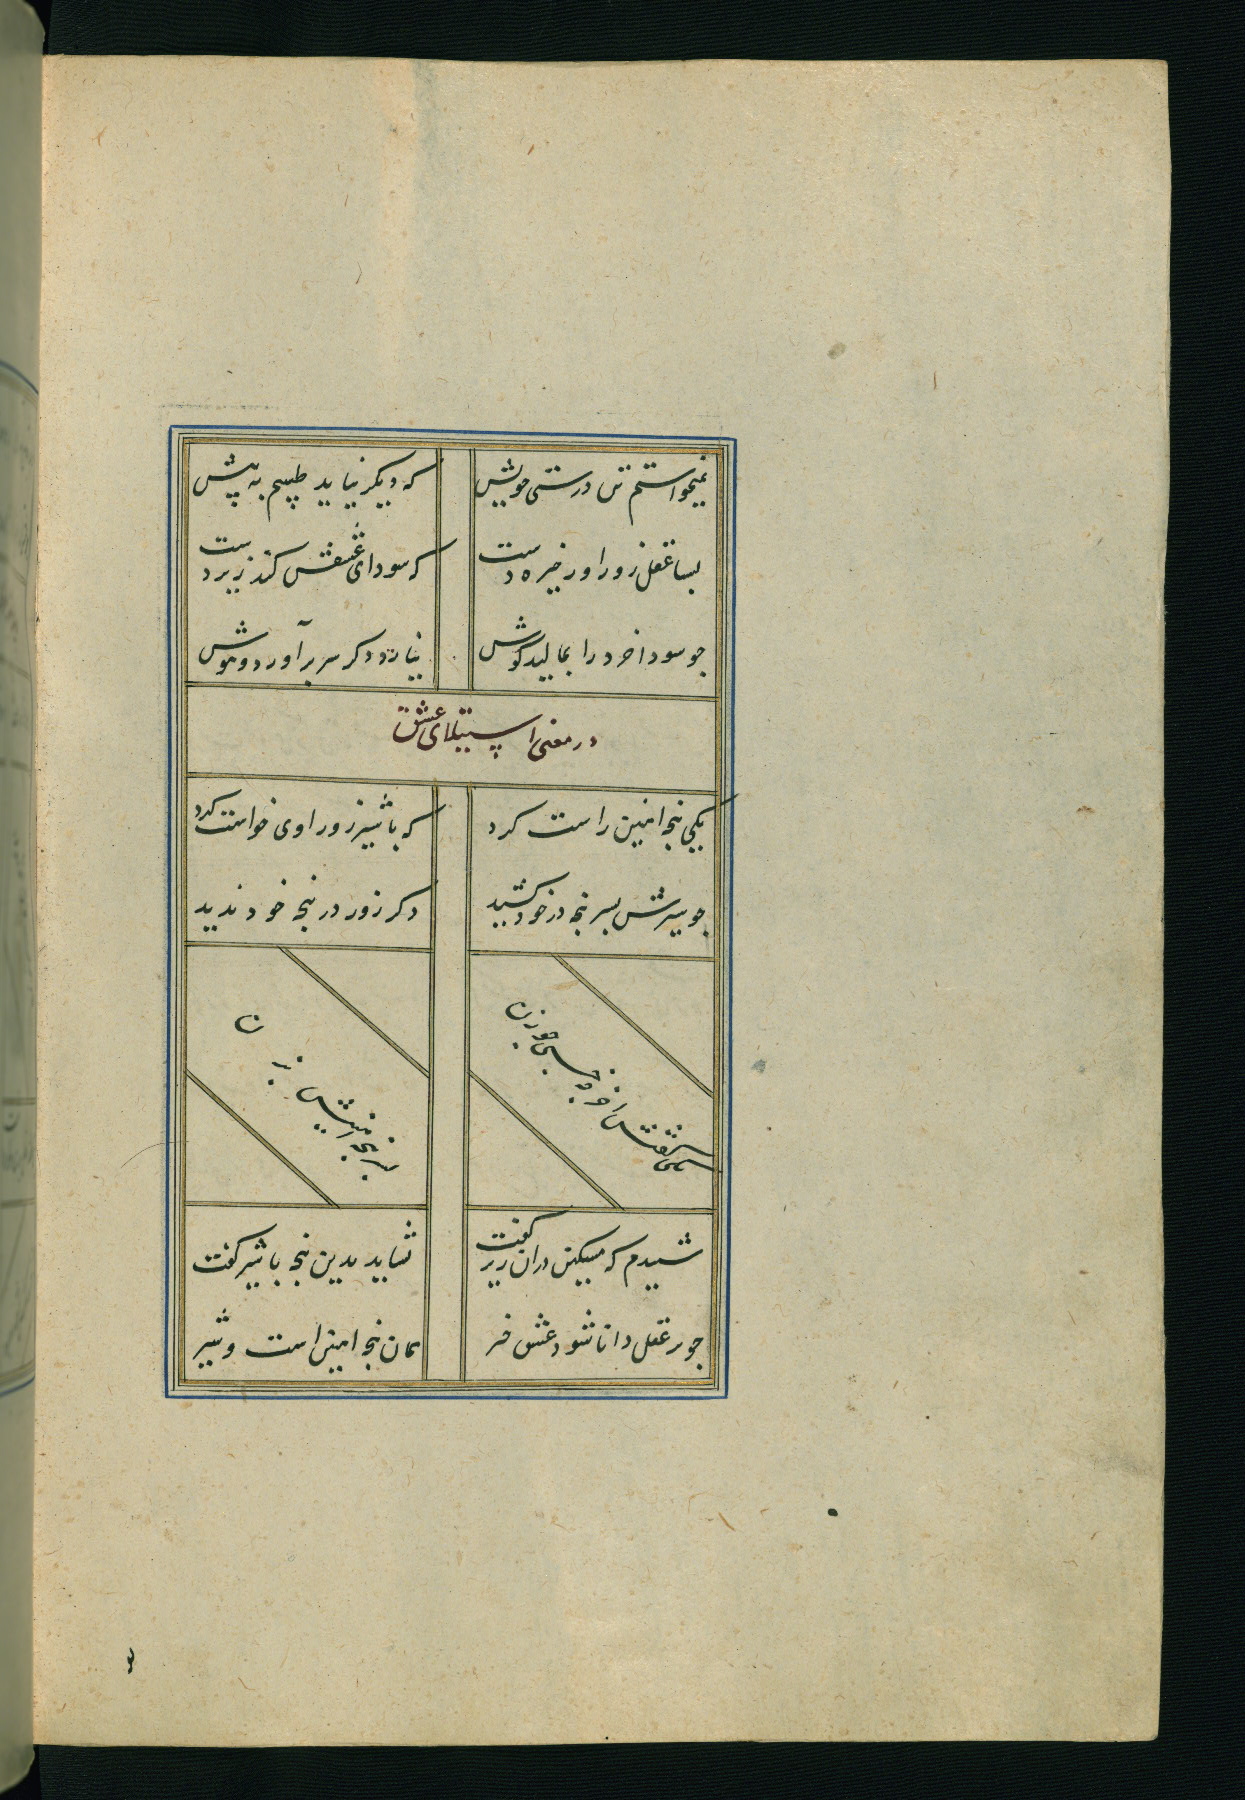 نمیخواستم تن درستی خویش
که دیگر نیاید طبیبم به پیش
بسا عقل زور اور خیره دست
که سودای عشقش کند زیر دست
جو سودا خرد را بمالید گوش
نیارد دکر سر برآورد و هوش
در معنی استیلای عشق
یکی پنجه اهنین راست کرد
که با شیر زور اوری خواست کرد
جو شیرش بسر پنجه در خود کشید
دکر زور در پنجه خود ندید
یکی گفتش اخر چه خسبی جو زن
سر پنجه اهنینش بزن
شنیدم که مسکین در ان زیر گفت
نشاید بدین پنجه با شیر گفت
جو بر عقل دانا شود عشق خر
همان پنجه اهنین است و شیر